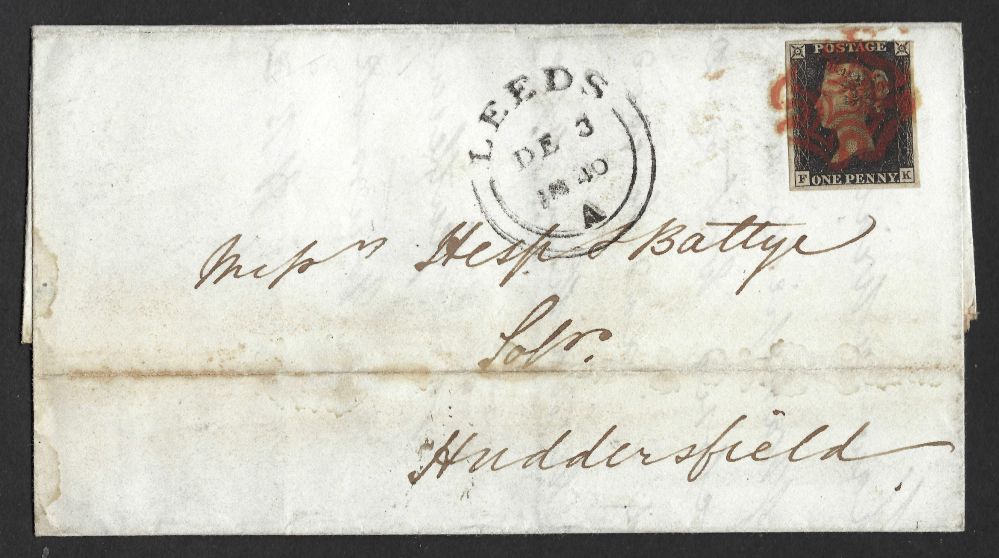 POSTAGE
F ONE PENNY. K
LEEDS
DE 3
1840
A
Messrs Hesp & Battye
Solrs.
Huddersfield.